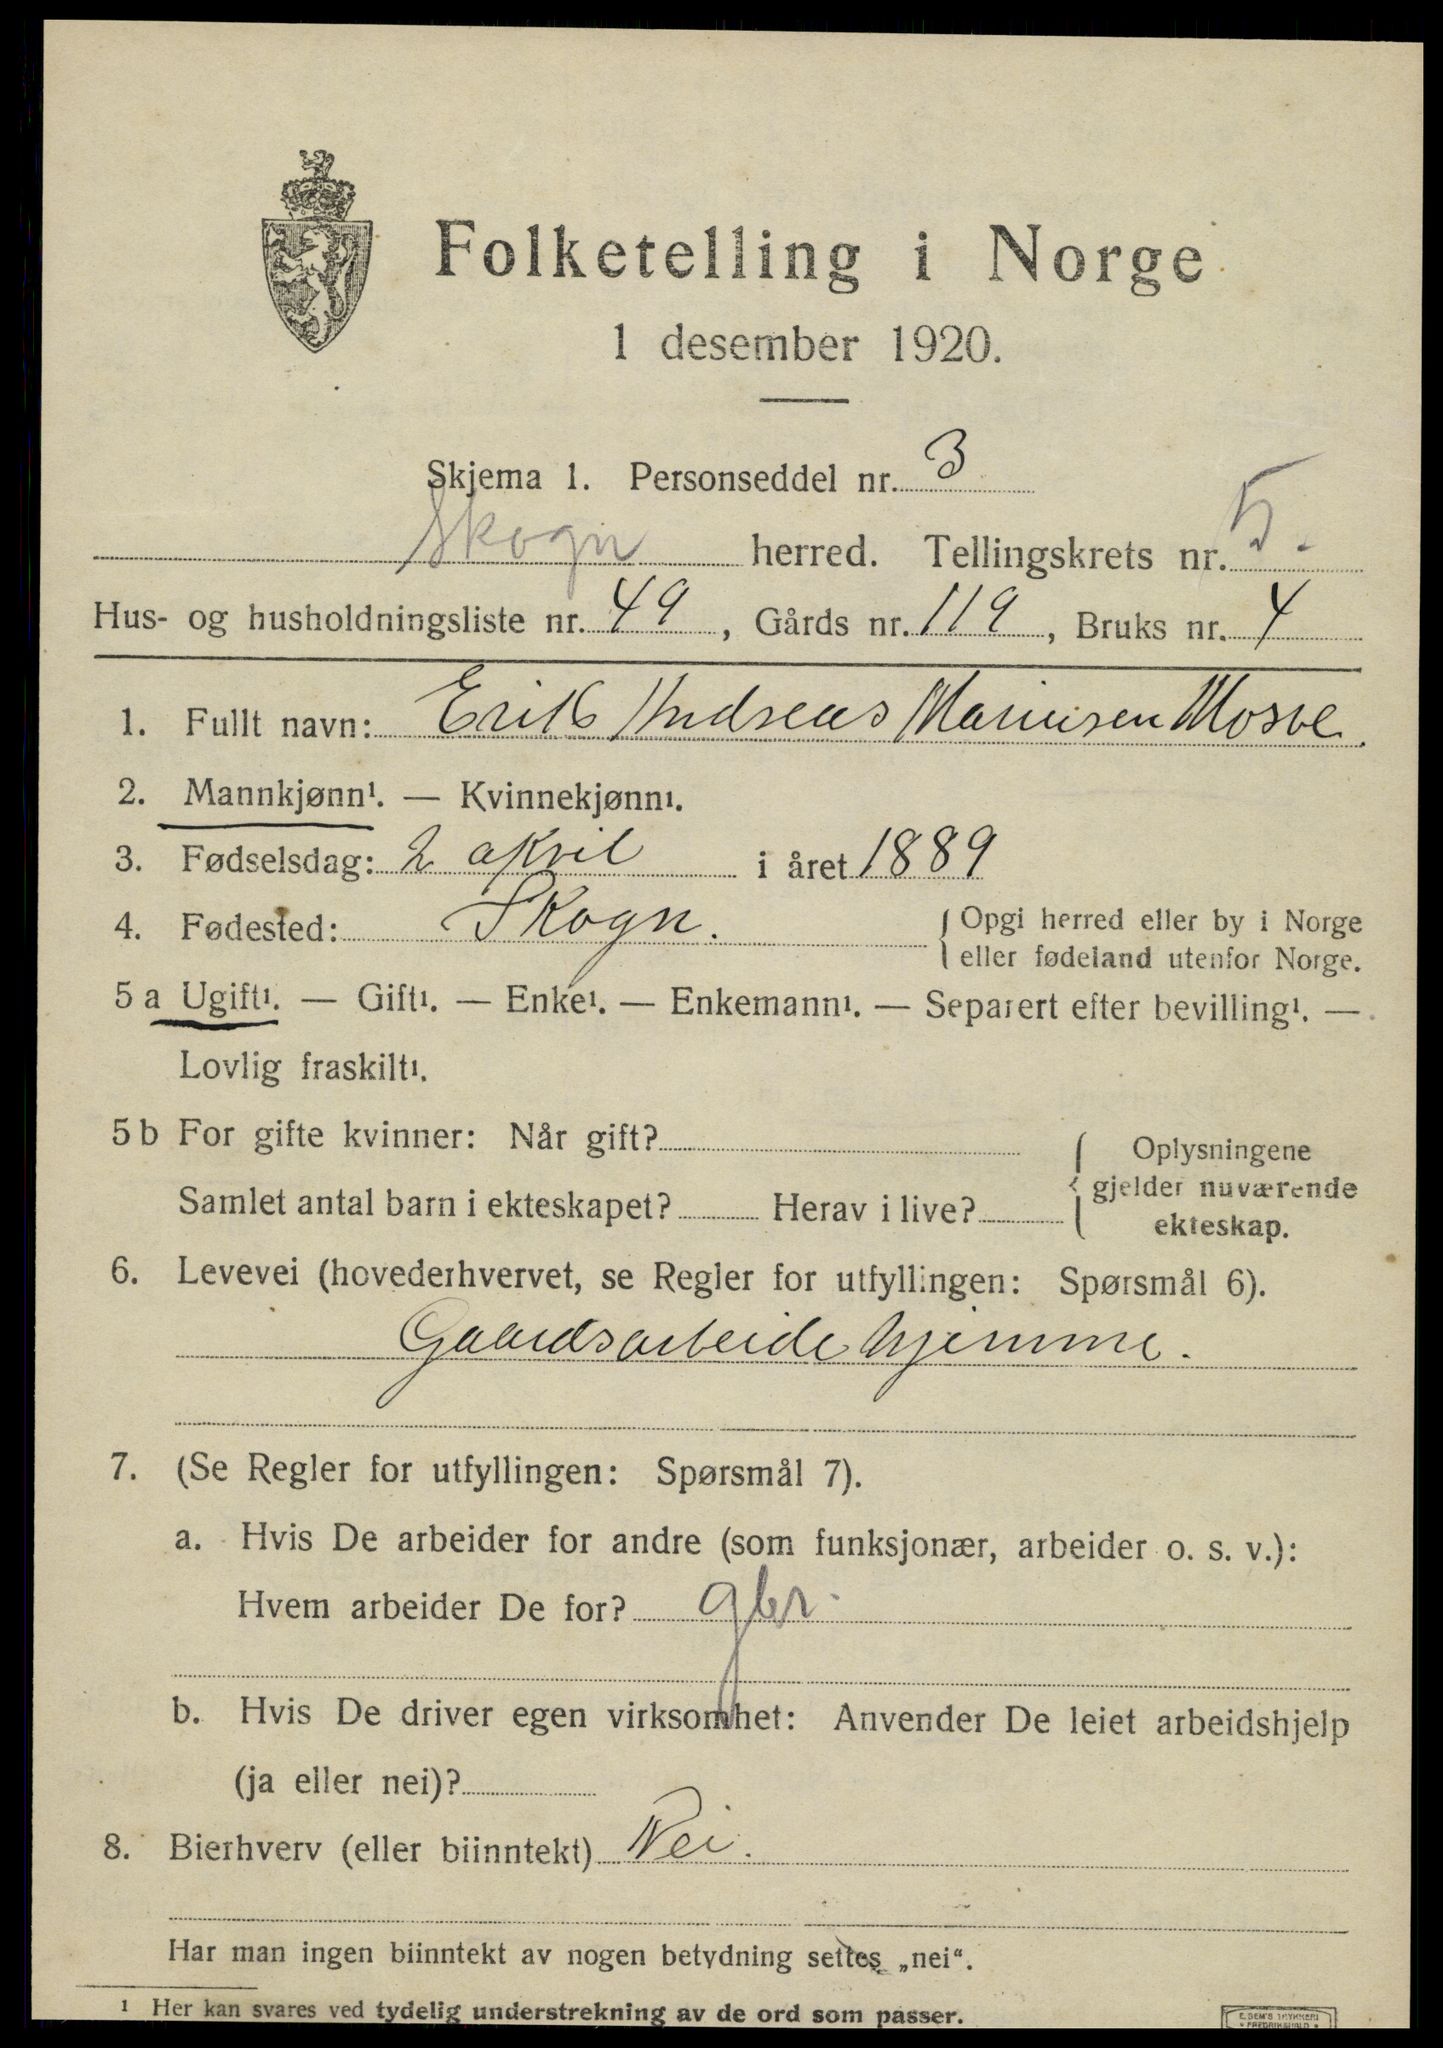 Folketelling i Norge
1 desember 1920.
Skjema 1. Personseddel nr. 3
Skogn herred. Tellingskrets nr. 5.
Hus- og husholdningsliste nr. 49, Gårds nr. 119, Bruks nr. 4
1. Fullt navn: Erik Andreas Mariusen Mosve
2. Mannkjønn¹. — Kvinnekjønn¹.
3. Fødselsdag: 2 april i året 1889
4. Fødested: Skogn. { Opgi herred eller by i Norge
eller fødeland utenfor Norge.
5 a Ugift¹. — Gift¹. — Enke¹. — Enkemann¹. — Separert efter bevilling¹. —
Lovlig fraskilt¹.
5 b For gifte kvinner: Når gift?
Samlet antal barn i ekteskapet? Herav i live?
{ Oplysningene
gjelder nuværende
ekteskap.
6. Levevei (hovederhvervet, se Regler for utfyllingen: Spørsmål 6).
Gaardsarbeide hjemme.
7. (Se Regler for utfyllingen: Spørsmål 7).
a. Hvis De arbeider for andre (som funksjonær, arbeider o. s. v.):
Hvem arbeider De for? gbr.
b. Hvis De driver egen virksomhet: Anvender De leiet arbeidshjelp
(ja eller nei)?
8. Bierhverv (eller biinntekt) Nei.
Har man ingen biinntekt av nogen betydning settes „nei“.
¹ Her kan svares ved tydelig understrekning av de ord som passer.